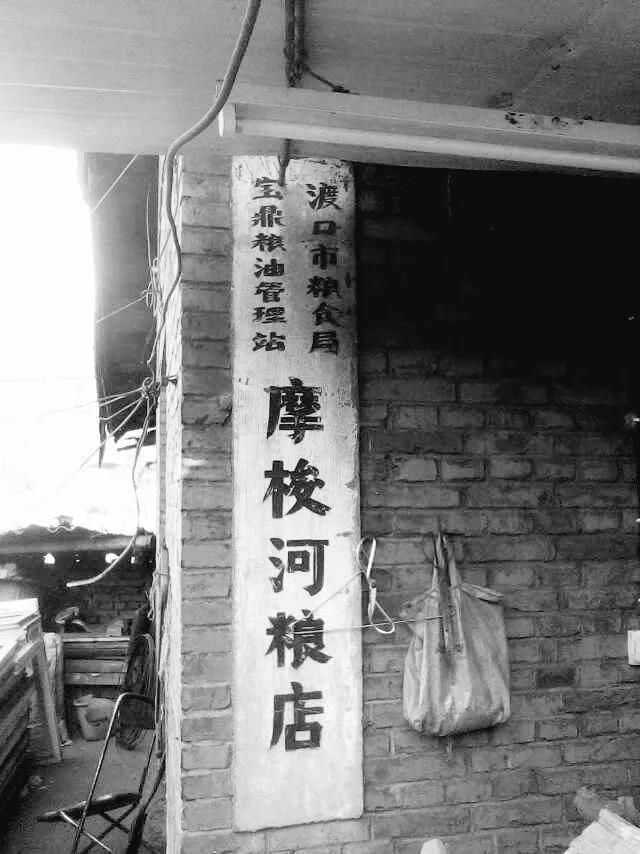 渡口市粮食局
宝鼎粮油管理站
摩梭河粮店